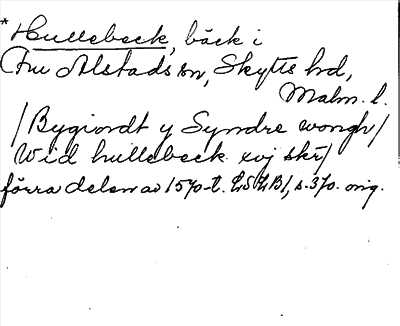 *Hullebeck, bäck i
Fru Alstads sn, Skytts hd,
Malm. l.
/Bygiordt y Syndre wongh/
Wid hullebeck xvj skr/
förra delen av 1570-t. LSLB1, s. 370. orig.